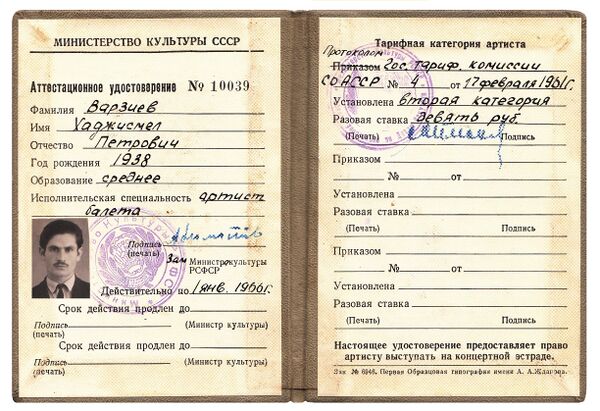 МИНИСТЕРСТВО КУЛЬТУРЫ СССР
Аттестационное удостоверение № 10039
Фамилия Варзиев
Имя Хаджисмел
Отчество Петрович
Год рождения 1938
Образование среднее
Исполнительская специальность артист
балета
Подпись
(печать)
Зам Министр культуры
РСФСР
Действительно до 1 янв. 1966 г.
Срок действия продлен до
Подпись (Министр культуры)
(печать)
Срок действия продлен до
Подпись (Министр культуры)
(печать)
Тарифная категория артиста
Протоколом
Приказом Гос. тариф. комиссии
СО АССР № 4 от 17 февраля 1961 г.
Установлена вторая категория
Разовая ставка девять руб.
(Печать) Подпись
Приказом
№ от
Установлена
Разовая ставка
(Печать) Подпись
Приказом
№ от
Установлена
Разовая ставка
(Печать) Подпись
Настоящее удостоверение предоставляет право
артисту выступать на концертной эстраде.
Зак. № 6948. Первая Образцовая типография имени А. А. Жданова.